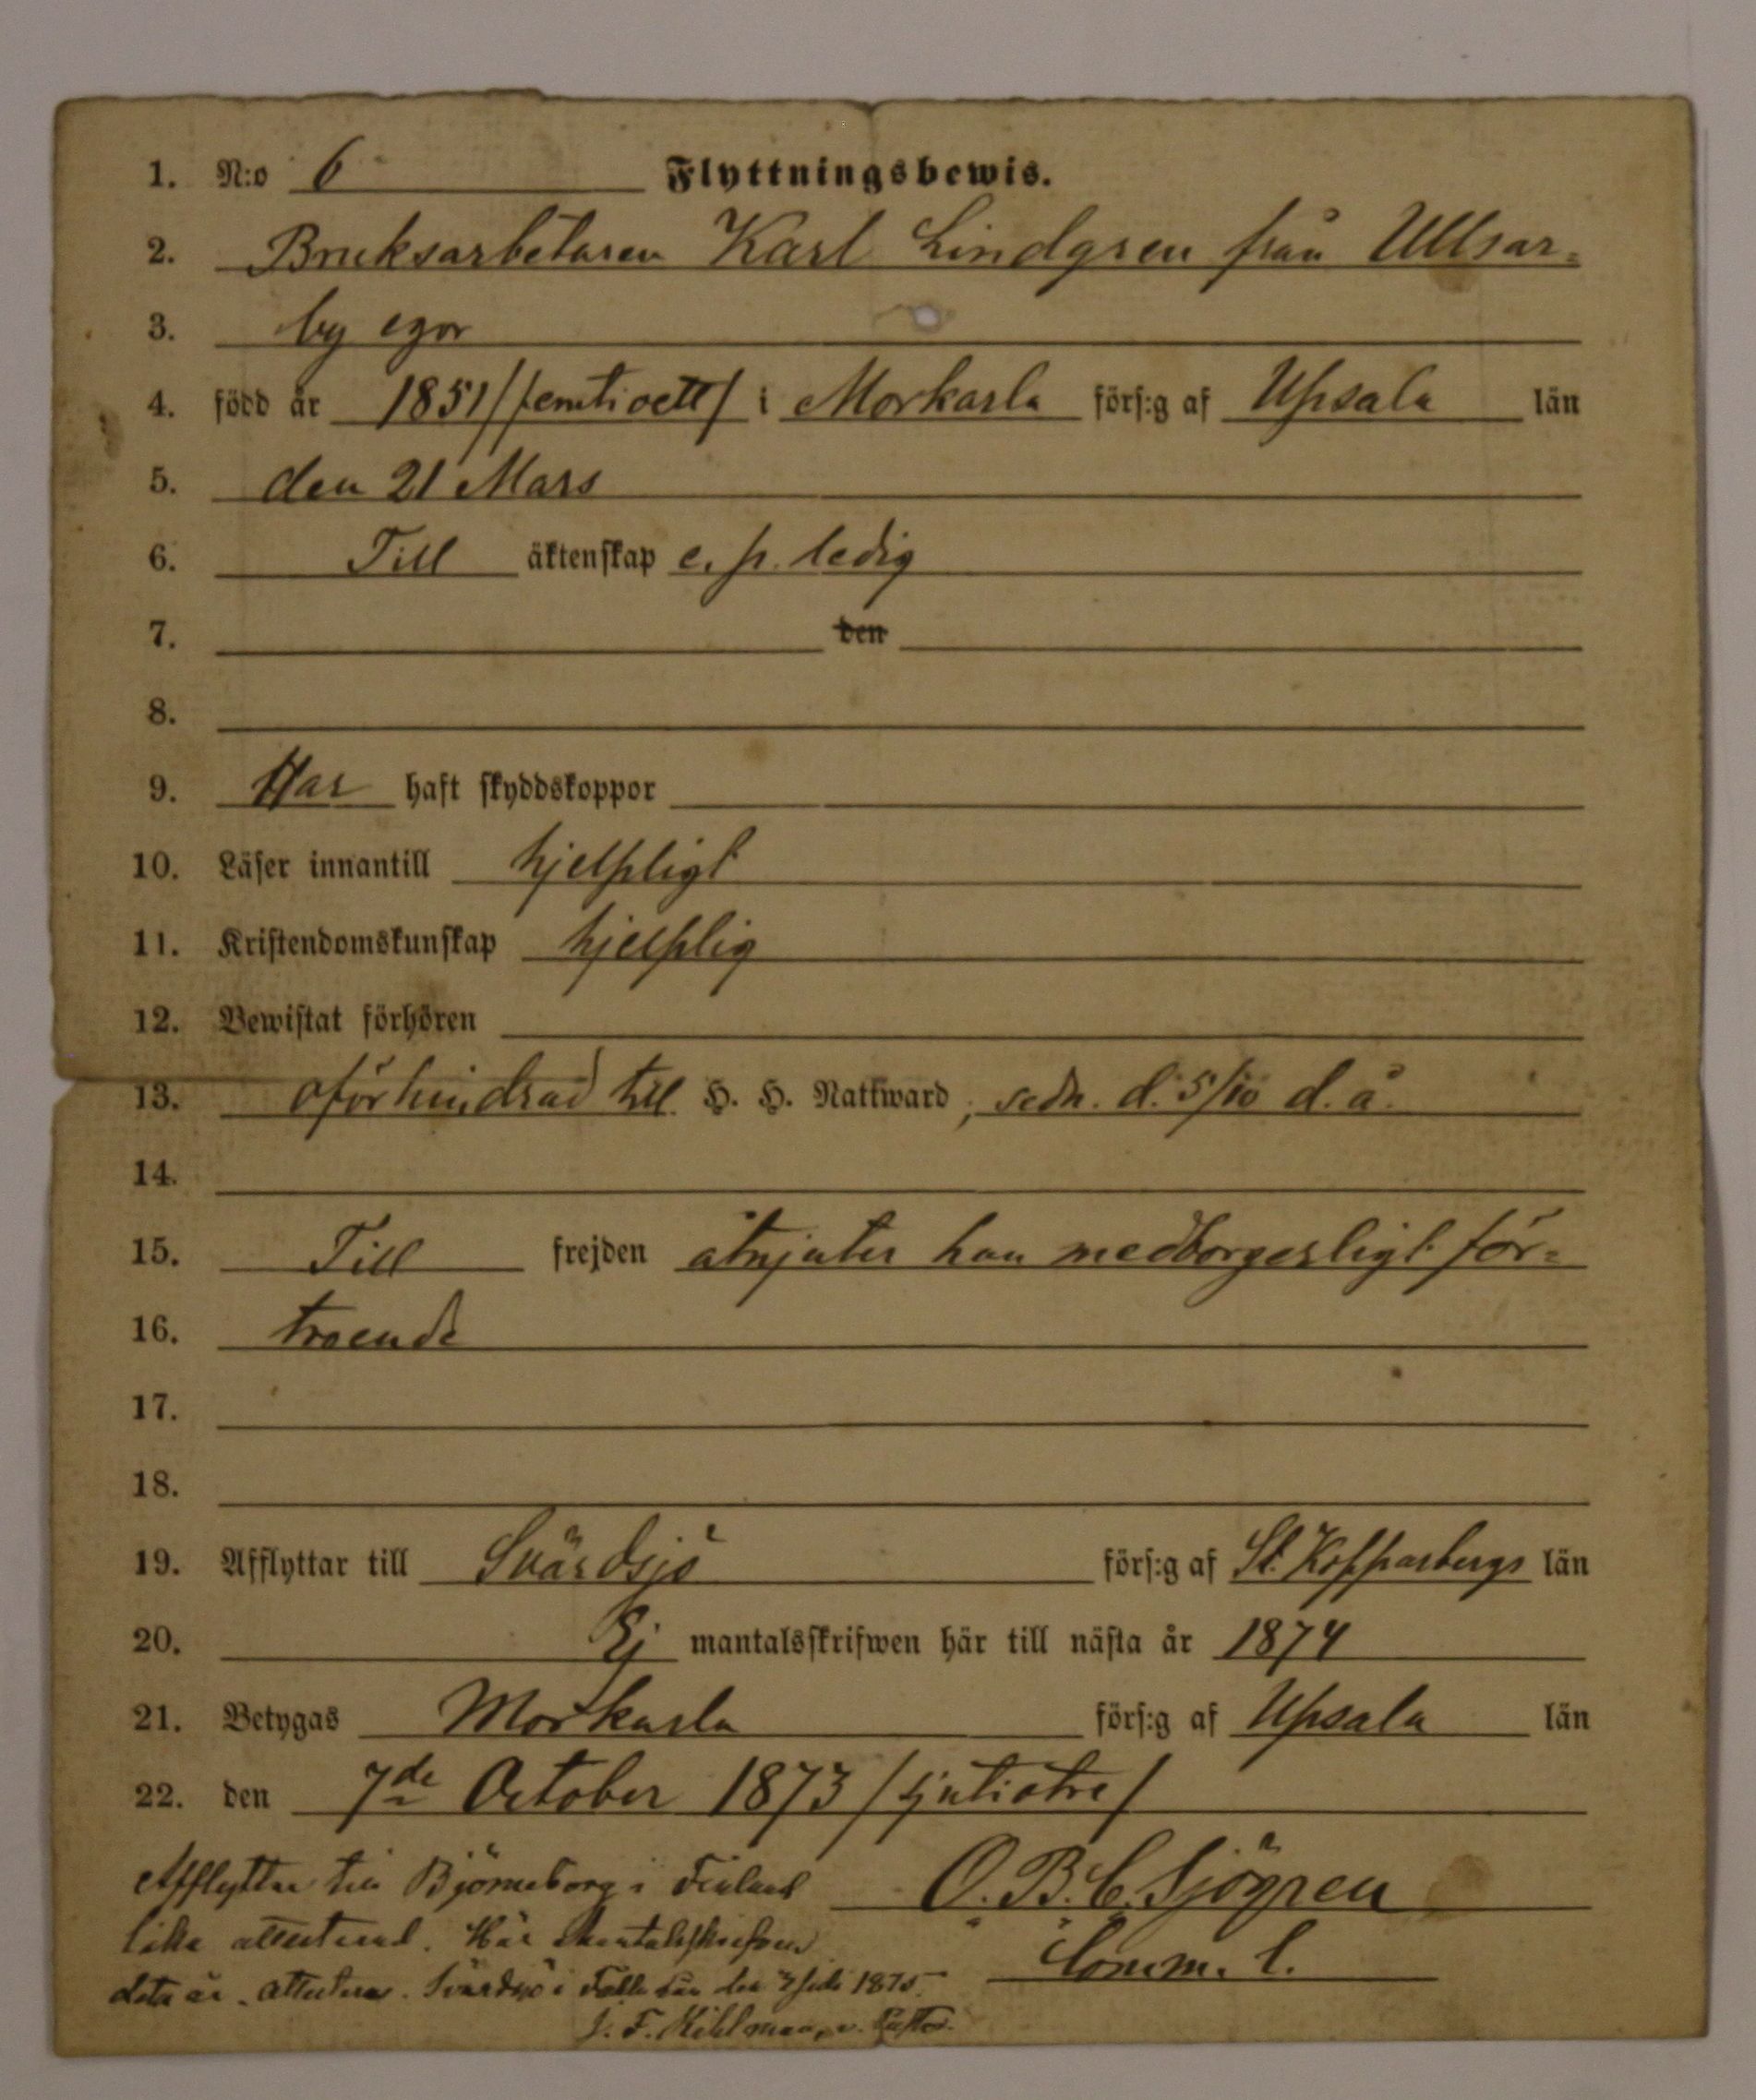 1. N:o 6 Flyttningsbewis.
2. Bruksarbetaren Karl Lindgren från Ullsar=
3. by egor
4. född år 1851/femtioett/ i Morkarla förs:g af Upsala län
5. den 21 Mars
6. Till äktenskap e. p. ledig
7. den
8.
9. Har haft skyddskoppor
10. Läser innantill hjelpligt
11. Kristendomskunskap hjelplig
12. Bewistat förhören
13. oförhindrad till H. H. Nattward, sedn. d. 5/10 d. å.
14.
15. Till frejden åtnjuter han medborgerligt för=
16. troende
17.
18.
19. Afflyttar till Svärdsjö förs:g af St. Kopparbergs län
20. Ej mantalsskrifwen här till nästa år 1874
21. Betygas Morkarla förs:g af Upsala län
22. den 7de October 1873 /sjutiotre/
Afflyttar till Björneborg i Finland O. B. C. Sjögren
lika attesterad. Här Mantalsskrifven Comm. l.
detta år. attesteras. Svärdsjö i Falu län den 1875.
J. F. Kihlman, v. Pastor.